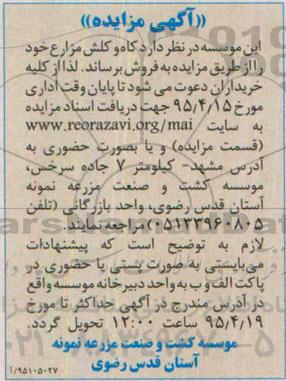 «آگهی مزایده»
این موسسه در نظر دارد کاه و کلش مزارع خود
را از طریق مزایده به فروش برساند. لذا از کلیه
خریداران دعوت می شود تا پایان وقت اداری
مورخ ۹۵/۴/۱۵ جهت دریافت اسناد مزایده
به سایت www.reorazavi.org/mai
(قسمت مزایده) و یا بصورت حضوری به
آدرس مشهد- کیلومتر ۷ جاده سرخس،
موسسه کشت و صنعت مزرعه نمونه
آستان قدس رضوی، واحد بازرگانی (تلفن
۰۵۱۳۳۹۶۰۸۰۵) مراجعه نمایند.
لازم به توضیح است که پیشنهادات
می‌بایستی به صورت پستی یا حضوری در
پاکت الف و ب به واحد دبیرخانه موسسه واقع
در آدرس مندرج در آگهی حداکثر تا مورخ
۹۵/۴/۱۹ ساعت ۱۲:۰۰ تحویل گردد.
موسسه کشت و صنعت مزرعه نمونه
آستان قدس رضوی
۹۵۱۰۵۰۲۷/آ